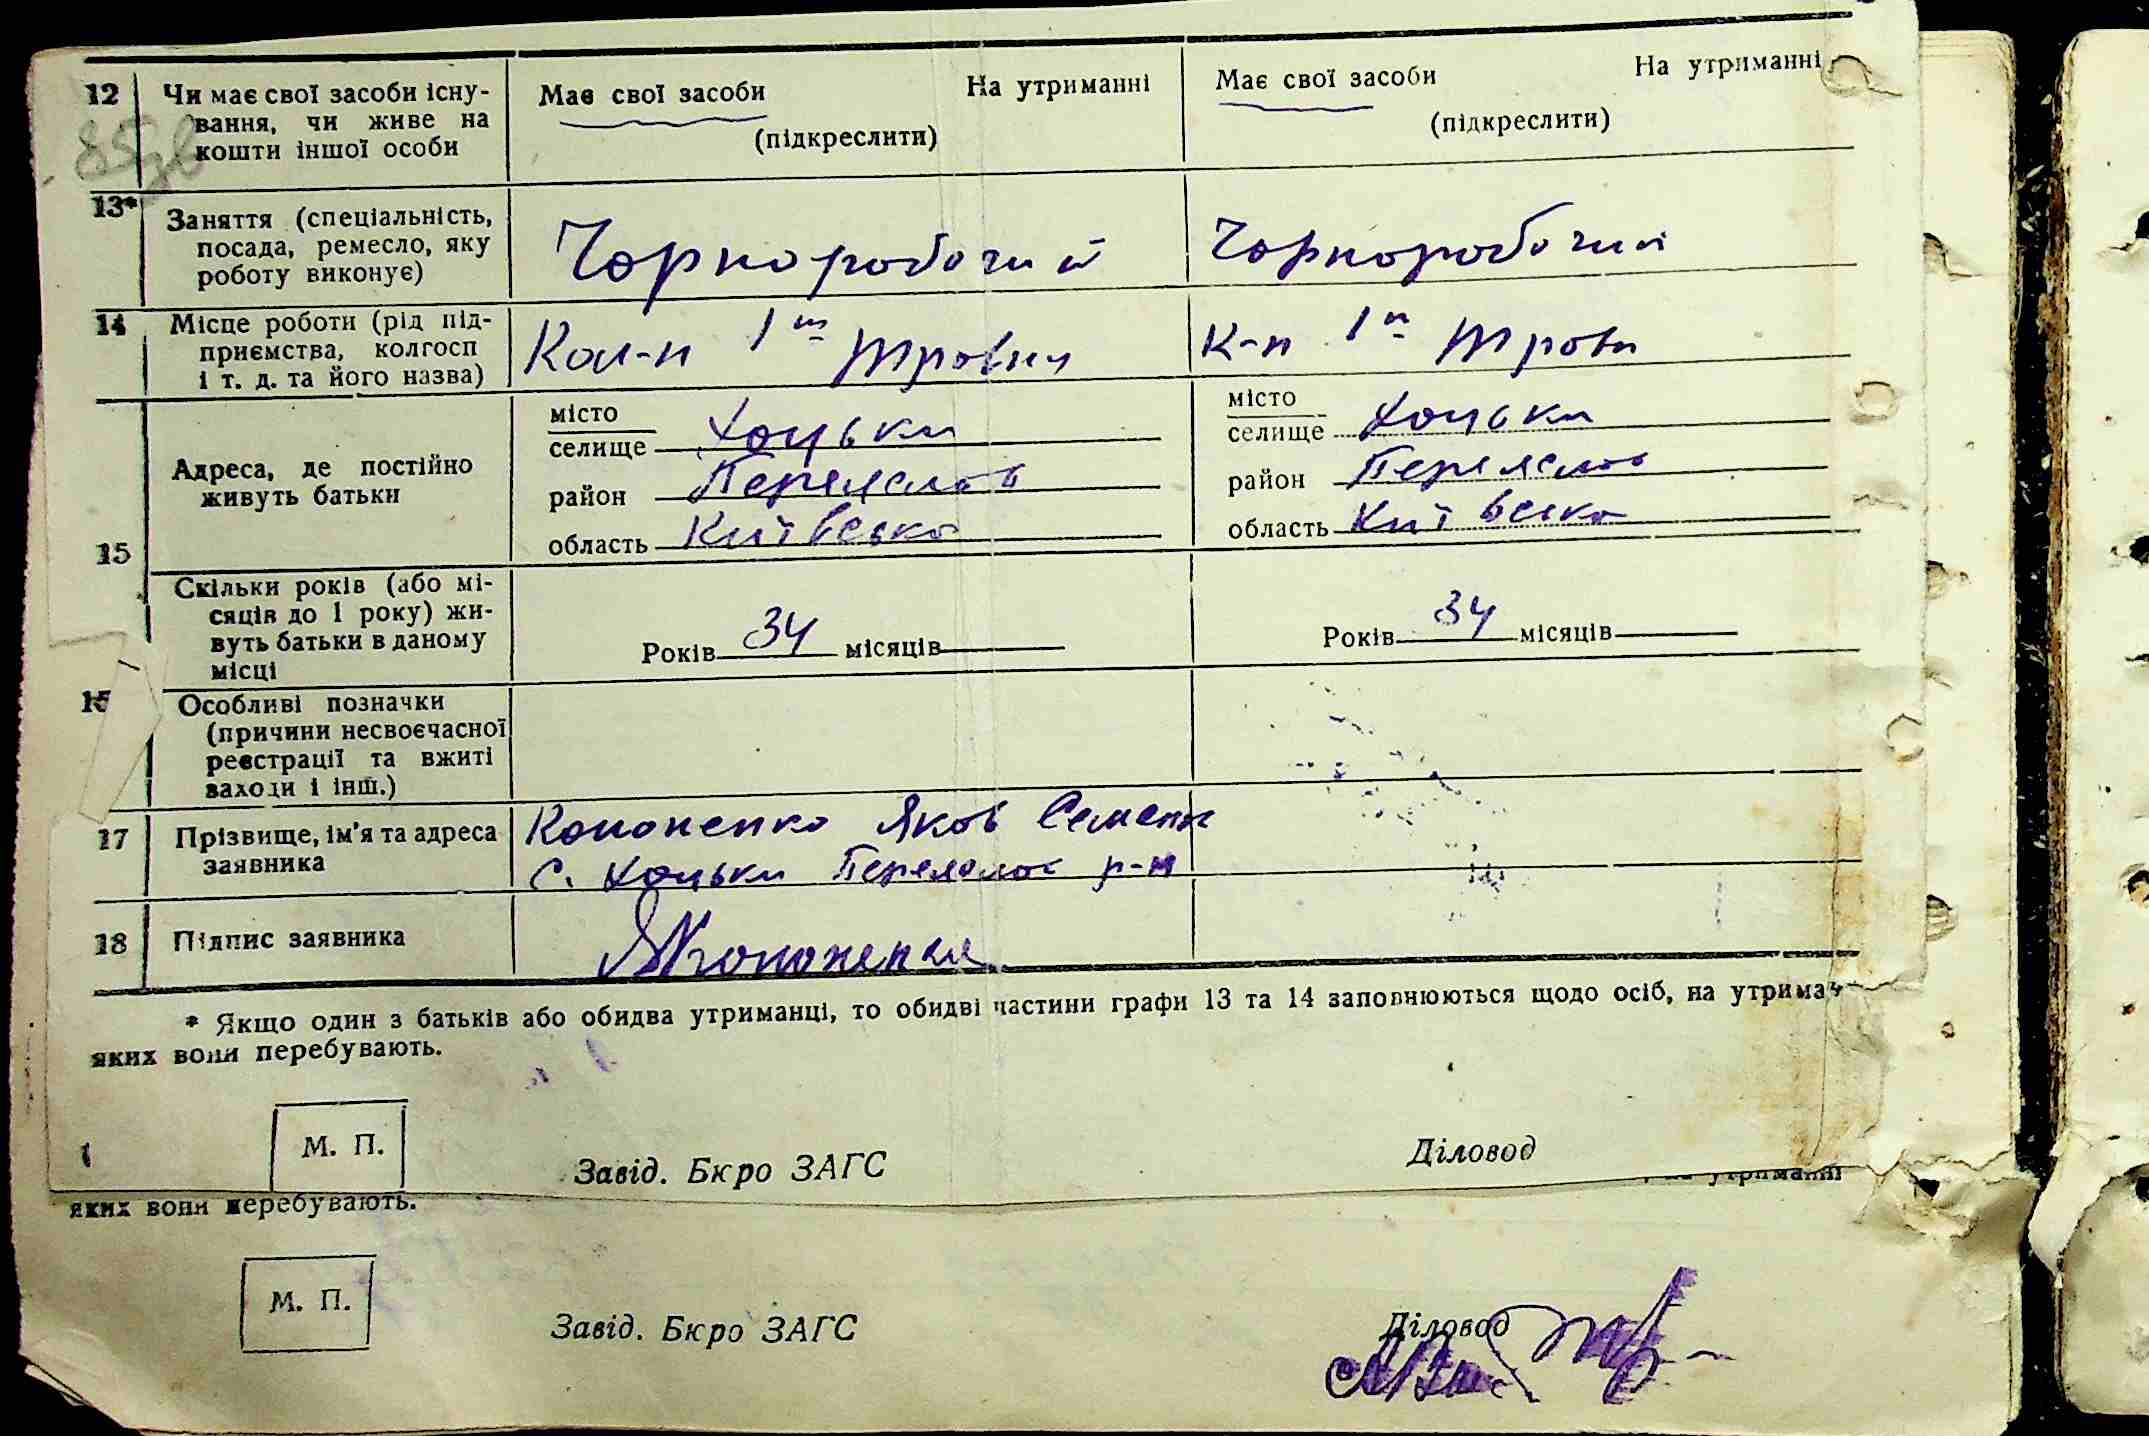 12 Чи має свої засоби існу- Має свої засоби На утриманні Має свої засоби На утриманні
вання, чи живе на (підкреслити) (підкреслити)
кошти іншої особи
13* Заняття (спеціальність,
посада, ремесло, яку Чорноробочий Чорноробочий
роботу виконує)
14 Місце роботи (рід під-
приємства, колгосп Кол-п 1го Травня К-п 1го Травн
і т. д. та його назва)
місто місто
селище Хоцьки селище Хоцьки
Адреса, де постійно
живуть батьки район Переяслав район Переяслав
15 область Київська область Київська
Скільки років (або мі-
сяців до 1 року) жи-
вуть батьки в даному Років 34 місяців Років 34 місяців
місці
Особливі позначки
(причини несвоєчасної
реєстрації та вжиті
заходи і інш.)
17 Прізвище, ім'я та адреса Кононенко Яков Семен
заявника с. Хоцьки Переяслав р-н
18 Підпис заявника ЯКононенко
* Якщо один з батьків або обидва утриманці, то обидві частини графи 13 та 14 заповнюються щодо осіб, на утриман
яких вони перебувають.
М. П.
Завід. Бюро ЗАГС Діловод
утриманні
яких вони перебувають.
М. П.
Завід. Бюро ЗАГС Діловод